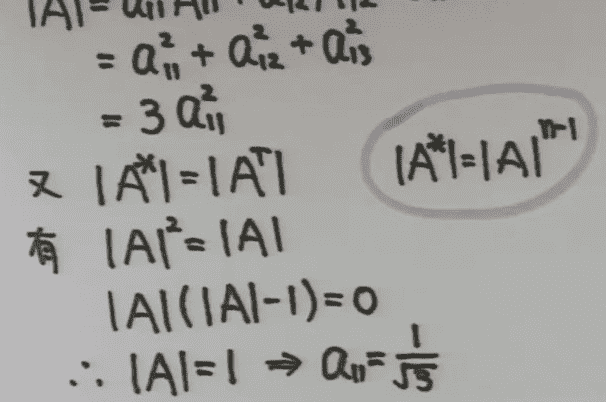 |A|= a₁₁A₁₁ + a₁₂A₁₂
= a₁₁² + a₁₂² + a₁₃²
= 3a₁₁²
又 |A*|=|Aᵀ| |A*|=|A|ⁿ⁻¹
有 |A|²=|A|
|A|(|A|-1)=0
∴ |A|=1 ⇒ a₁₁=1/√3